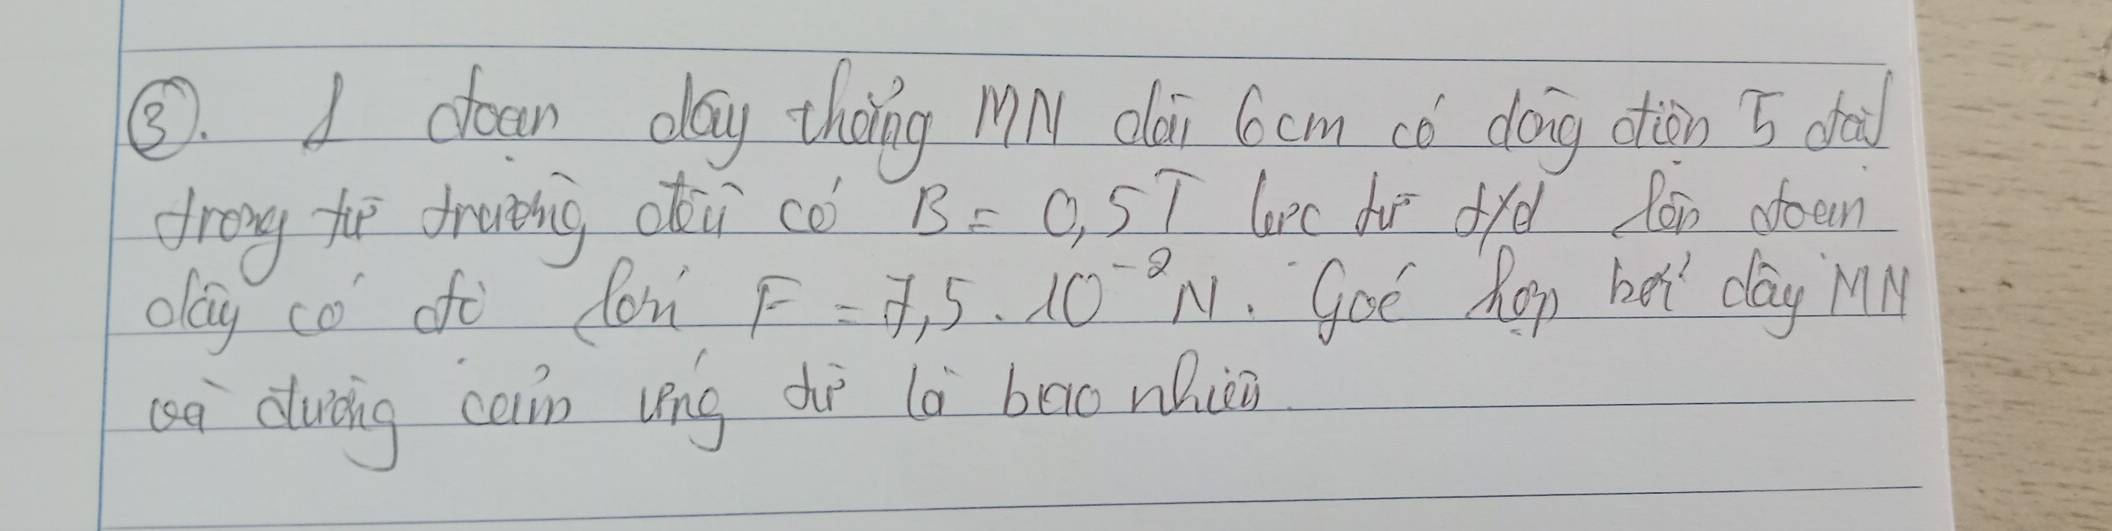 ③. 1 đoạn dây thẳng MN dài 6cm có dòng điện 5 đặt
trong từ trường đều có B = 0,5T lực từ t/d lên đoạn
dây có độ lớn F = 7,5 . 10⁻² N. Góc hợp bởi dây MN
và đường cảm ứng từ là bao nhiêu.